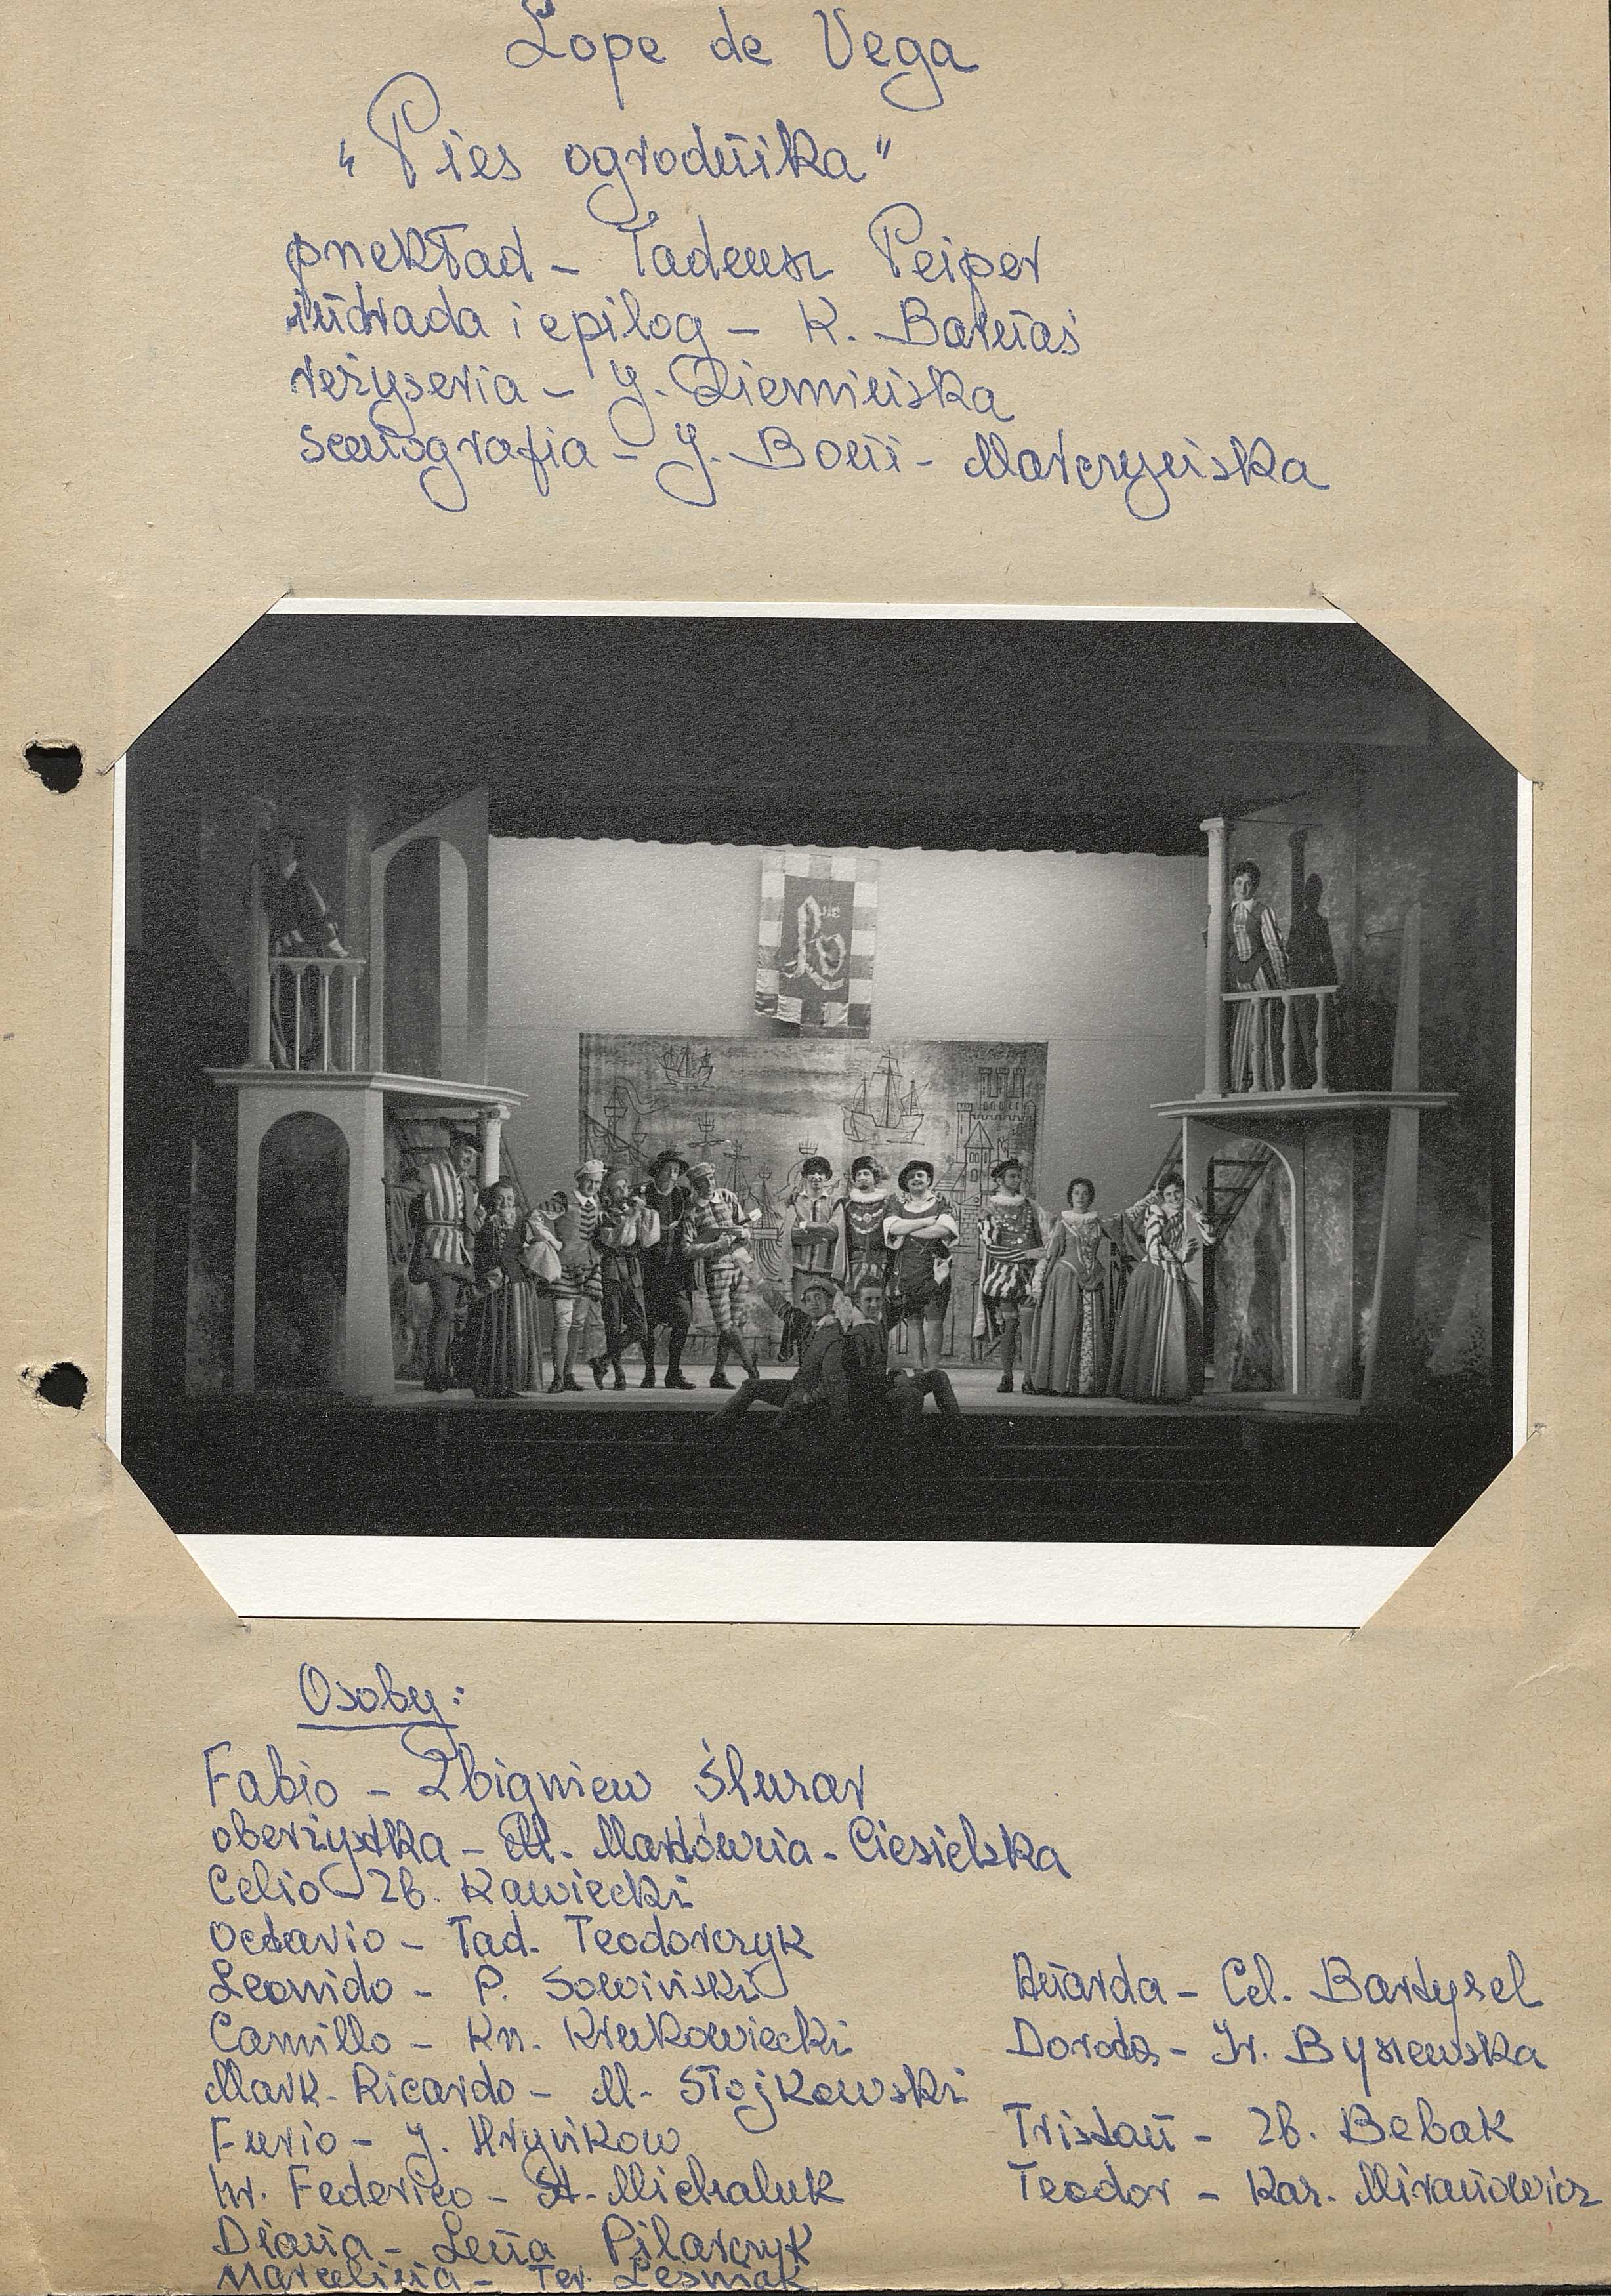 Lope de Vega
"Pies ogrodnika"
przekład - Tadeusz Peiper
intrada i epilog - K. Barnaś
reżyseria - J. Ziemińska
scenografia - J. Boni-Marczyńska
Osoby:
Fabio - Zbigniew Ślusar
oberżystka - M. Martówna-Ciesielska
Celio - Zb. Kawiecki
Octavio - Tad. Teodorczyk
Leonido - P. Sowiński
Camillo - Kn. Krukowiecki
Mark. Ricardo - M. Stojkowski
Furio - J. Hrynkow
hr. Federico - St. Michaluk
Diana - Lena Pilarczyk
Marcelina - Ter. Leśniak
Anarda - Cel. Bartysel
Dorota - Ir. Byszewska
Tristan - Zb. Bebak
Teodor - Kaz. Miranowicz